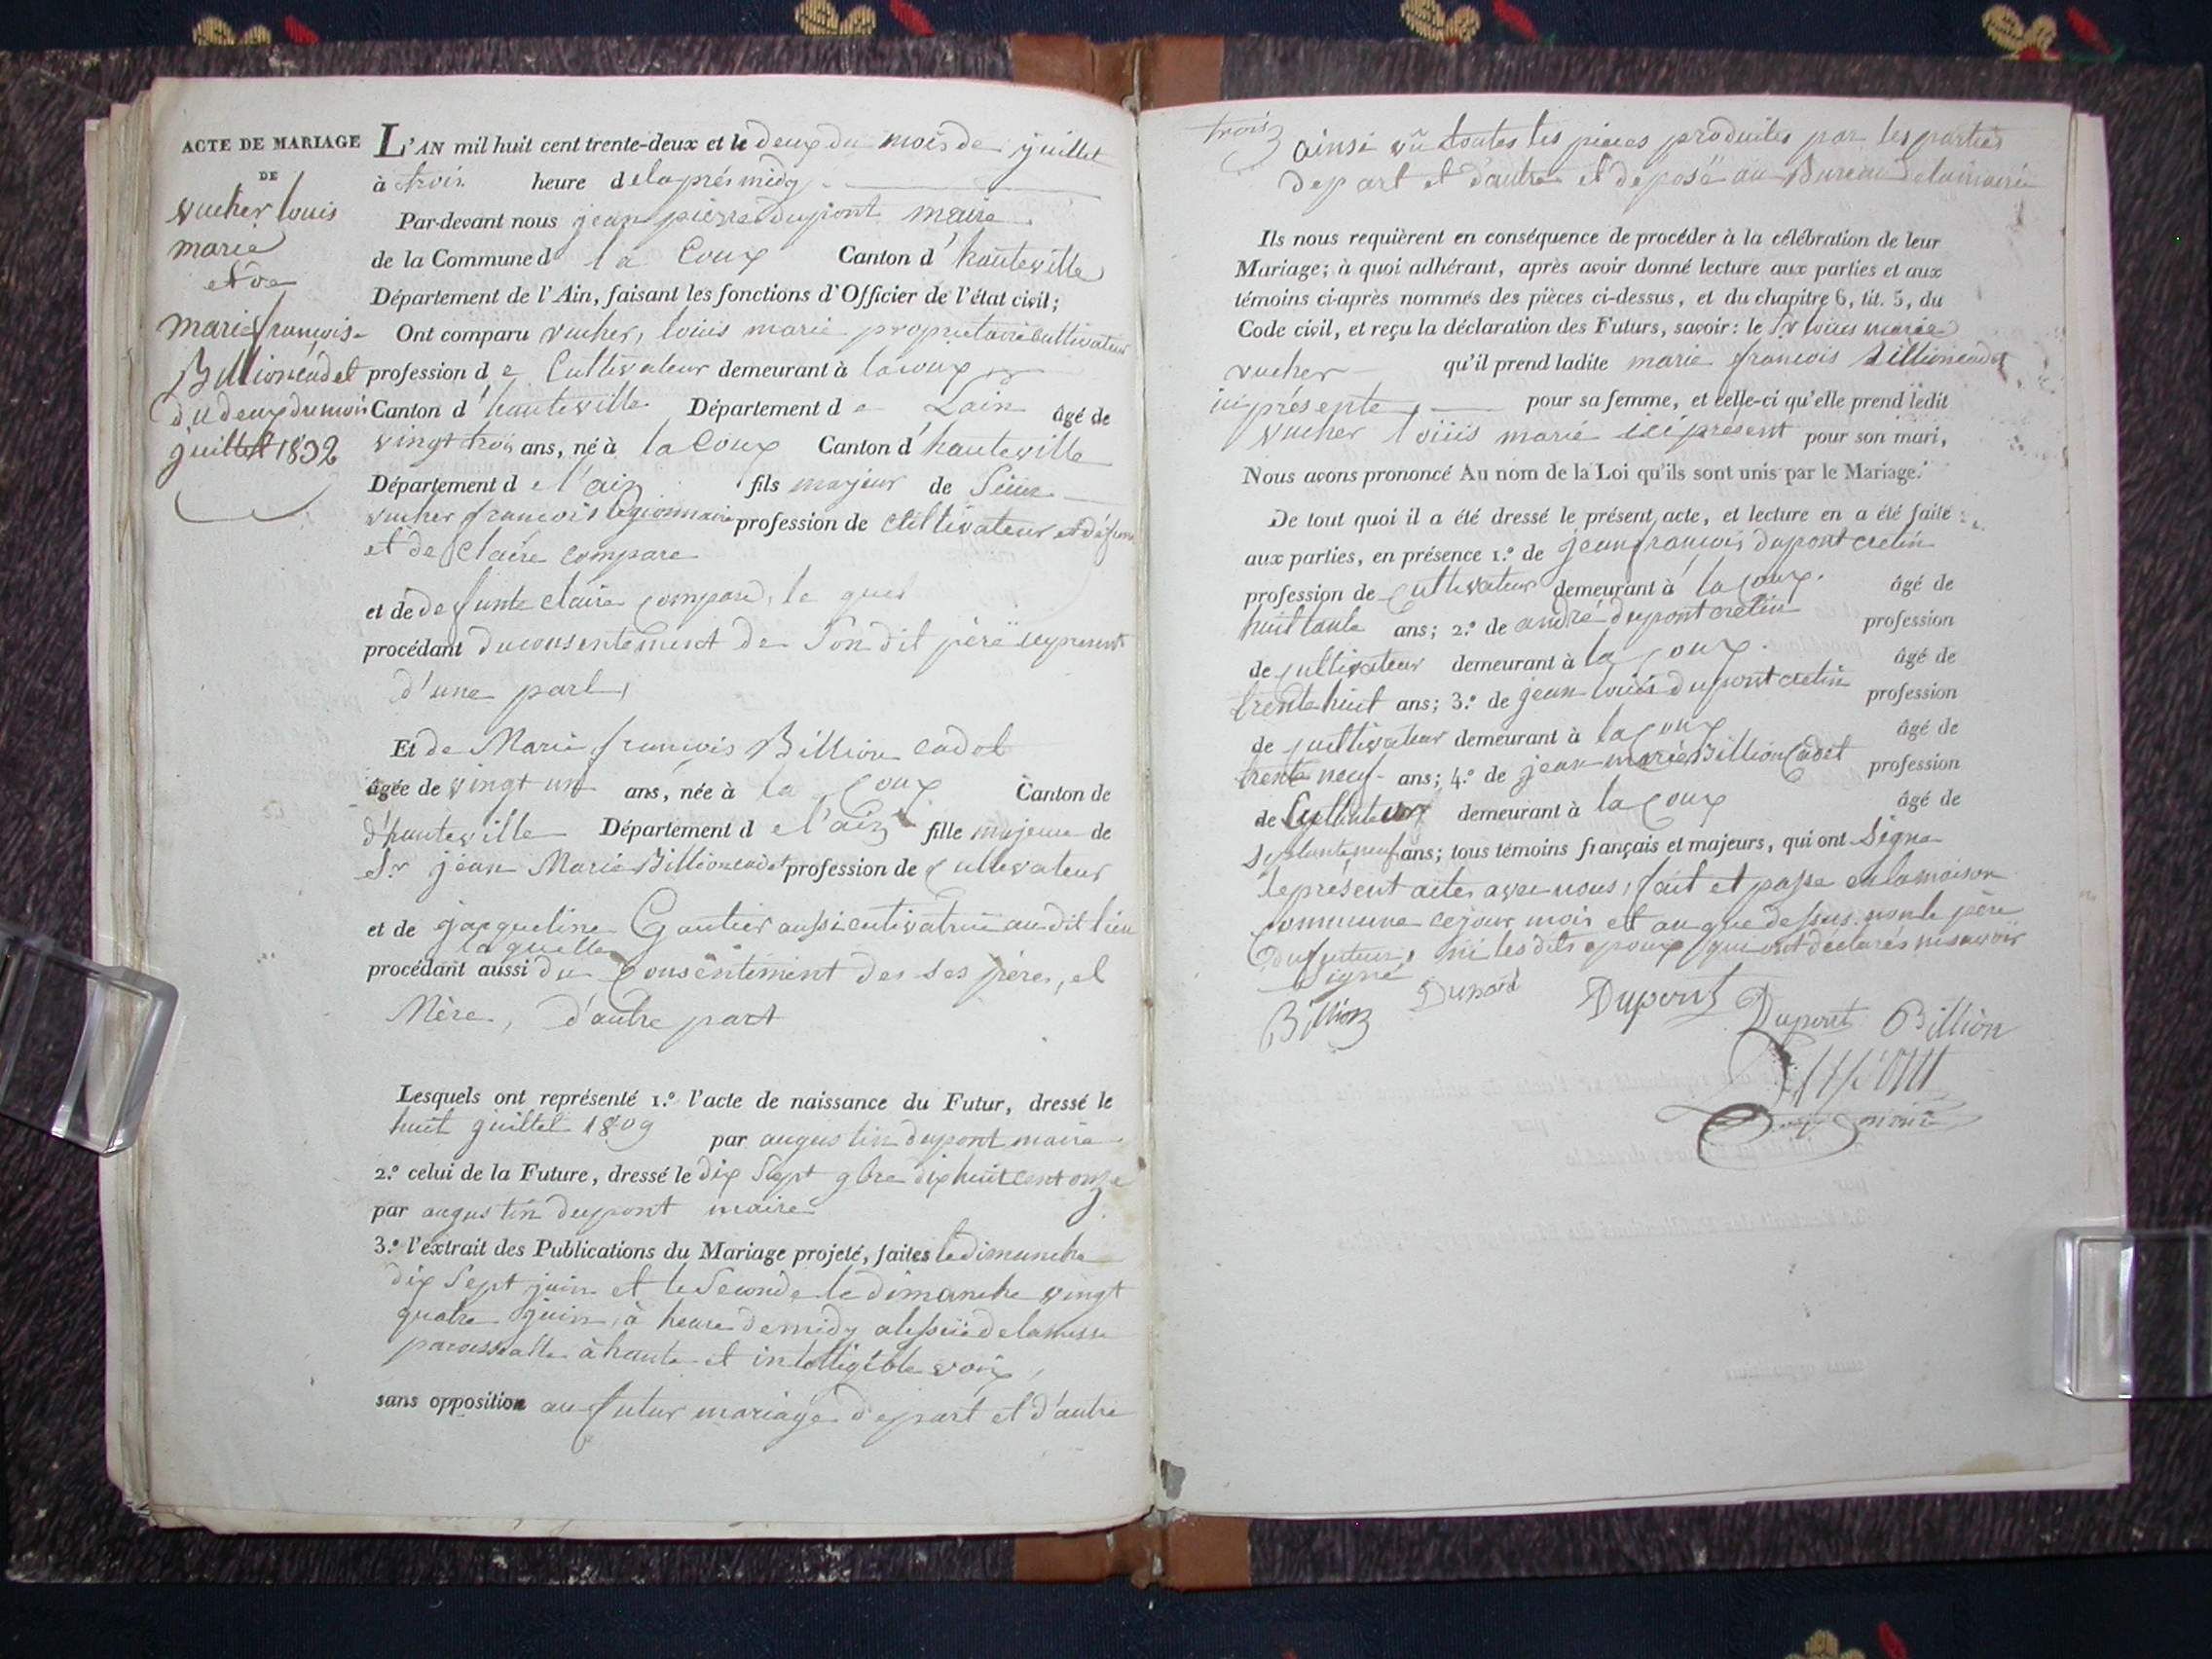 ACTE DE MARIAGE
DE
vucher louis
marie
et de
marie françois
Billion cadet
du deux du mois
juillet 1832
L'AN mil huit cent trente-deux et le deux du mois de juillet
à trois heure de laprés midy
Par-devant nous jean pierre dupont maire
de la Commune d la Coux Canton d'hauteville
Département de l'Ain, faisant les fonctions d'Officier de l'état civil;
Ont comparu vucher, louis marie propriétaire cultivateur
profession de Cultivateur demeurant à lacoux
Canton d'hauteville Département de Lain âgé de
vingt trois ans, né à la Coux Canton d'hauteville
Département de l'ain fils majeur de
vucher francois légionnaire profession de cultivateur
et de claire compare
et de defunte claire compare, le quel
procédant du consentement de son dit père
d'une part,
Et de Marie françois Billion cadet
âgée de vingt un ans, née à la Coux Canton de
d'hauteville Département de l'ain fille majeure de
Sr jean Marie Billion cadet profession de Cultivateur
et de jacqueline Gautier aussi cultivatrice au dit lieu
laquelle
procédant aussi du Consentiment des ses pères, et
Mère, d'autre part
Lesquels ont représenté 1.º l'acte de naissance du Futur, dressé le
huit juillet 1809 par augustin dupont maire
2.º celui de la Future, dressé le dix Sept 9bre dix huit cent onze
par augustin dupont maire
3.º l'extrait des Publications du Mariage projeté, faites le dimanche
dix Sept juin et le Seconde le dimanche vingt
quatre juin, à heure de midy de la messe
paroissialle à haute et intelligible voix,
sans opposition au futur mariage de part et d'autre
trois
ainsi vû toutes les pièces produites par les parties
de part et d'autre et déposé au Bureau de la mairie
Ils nous requièrent en conséquence de procéder à la célébration de leur
Mariage; à quoi adhérant, après avoir donné lecture aux parties et aux
témoins ci-après nommés des pièces ci-dessus, et du chapitre 6, tit. 5, du
Code civil, et reçu la déclaration des Futurs, savoir: le Sr louis marie
vucher qu'il prend ladite marie françois Billion cadet
ici présente, pour sa femme, et celle-ci qu'elle prend ledit
vucher louis marie ici présent pour son mari,
Nous avons prononcé Au nom de la Loi qu'ils sont unis par le Mariage.
De tout quoi il a été dressé le présent acte, et lecture en a été faite
aux parties, en présence 1.º de jean françois dupont cretin
profession de Cultivateur demeurant à la Coux. âgé de
huittante ans; 2.º de andré dupont cretin profession
de cultivateur demeurant à la Coux. âgé de
trente huit ans; 3.º de jean louis dupont cretin profession
de cultivateur demeurant à la Coux âgé de
trente neuf ans; 4.º de jean marie Billion Cadet profession
de Cultivateur demeurant à la Coux âgé de
Septante neuf ans; tous témoins français et majeurs, qui ont signe
le présent acte avec nous, fait et passe en la maison
commune ce jour mois et an que dessus. non le père
du futeur, ni les dits epoux qui ont déclarés ni savoir
signé
Billion Dupont Dupont Dupont Billion
Dupont
maire